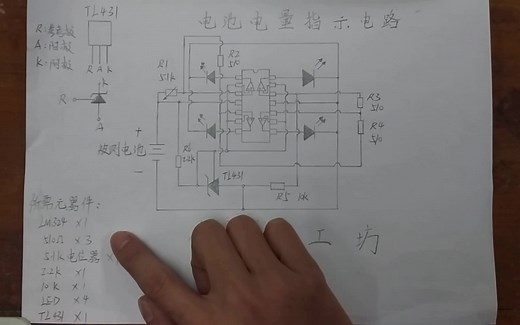 TL431
电池电量指示电路
R:参考极
A:阳极
K:阴极
R A K
K
R
A
R1
5.1k
R2
510
R3
510
R4
510
+
被测电池
-
R6
2.2k
TL431
R5 10k
所需元器件:
LM324 ×1
510Ω ×3
5.1k电位器 ×
2.2k ×1
10k ×1
LED ×4
TL431 ×1
工坊